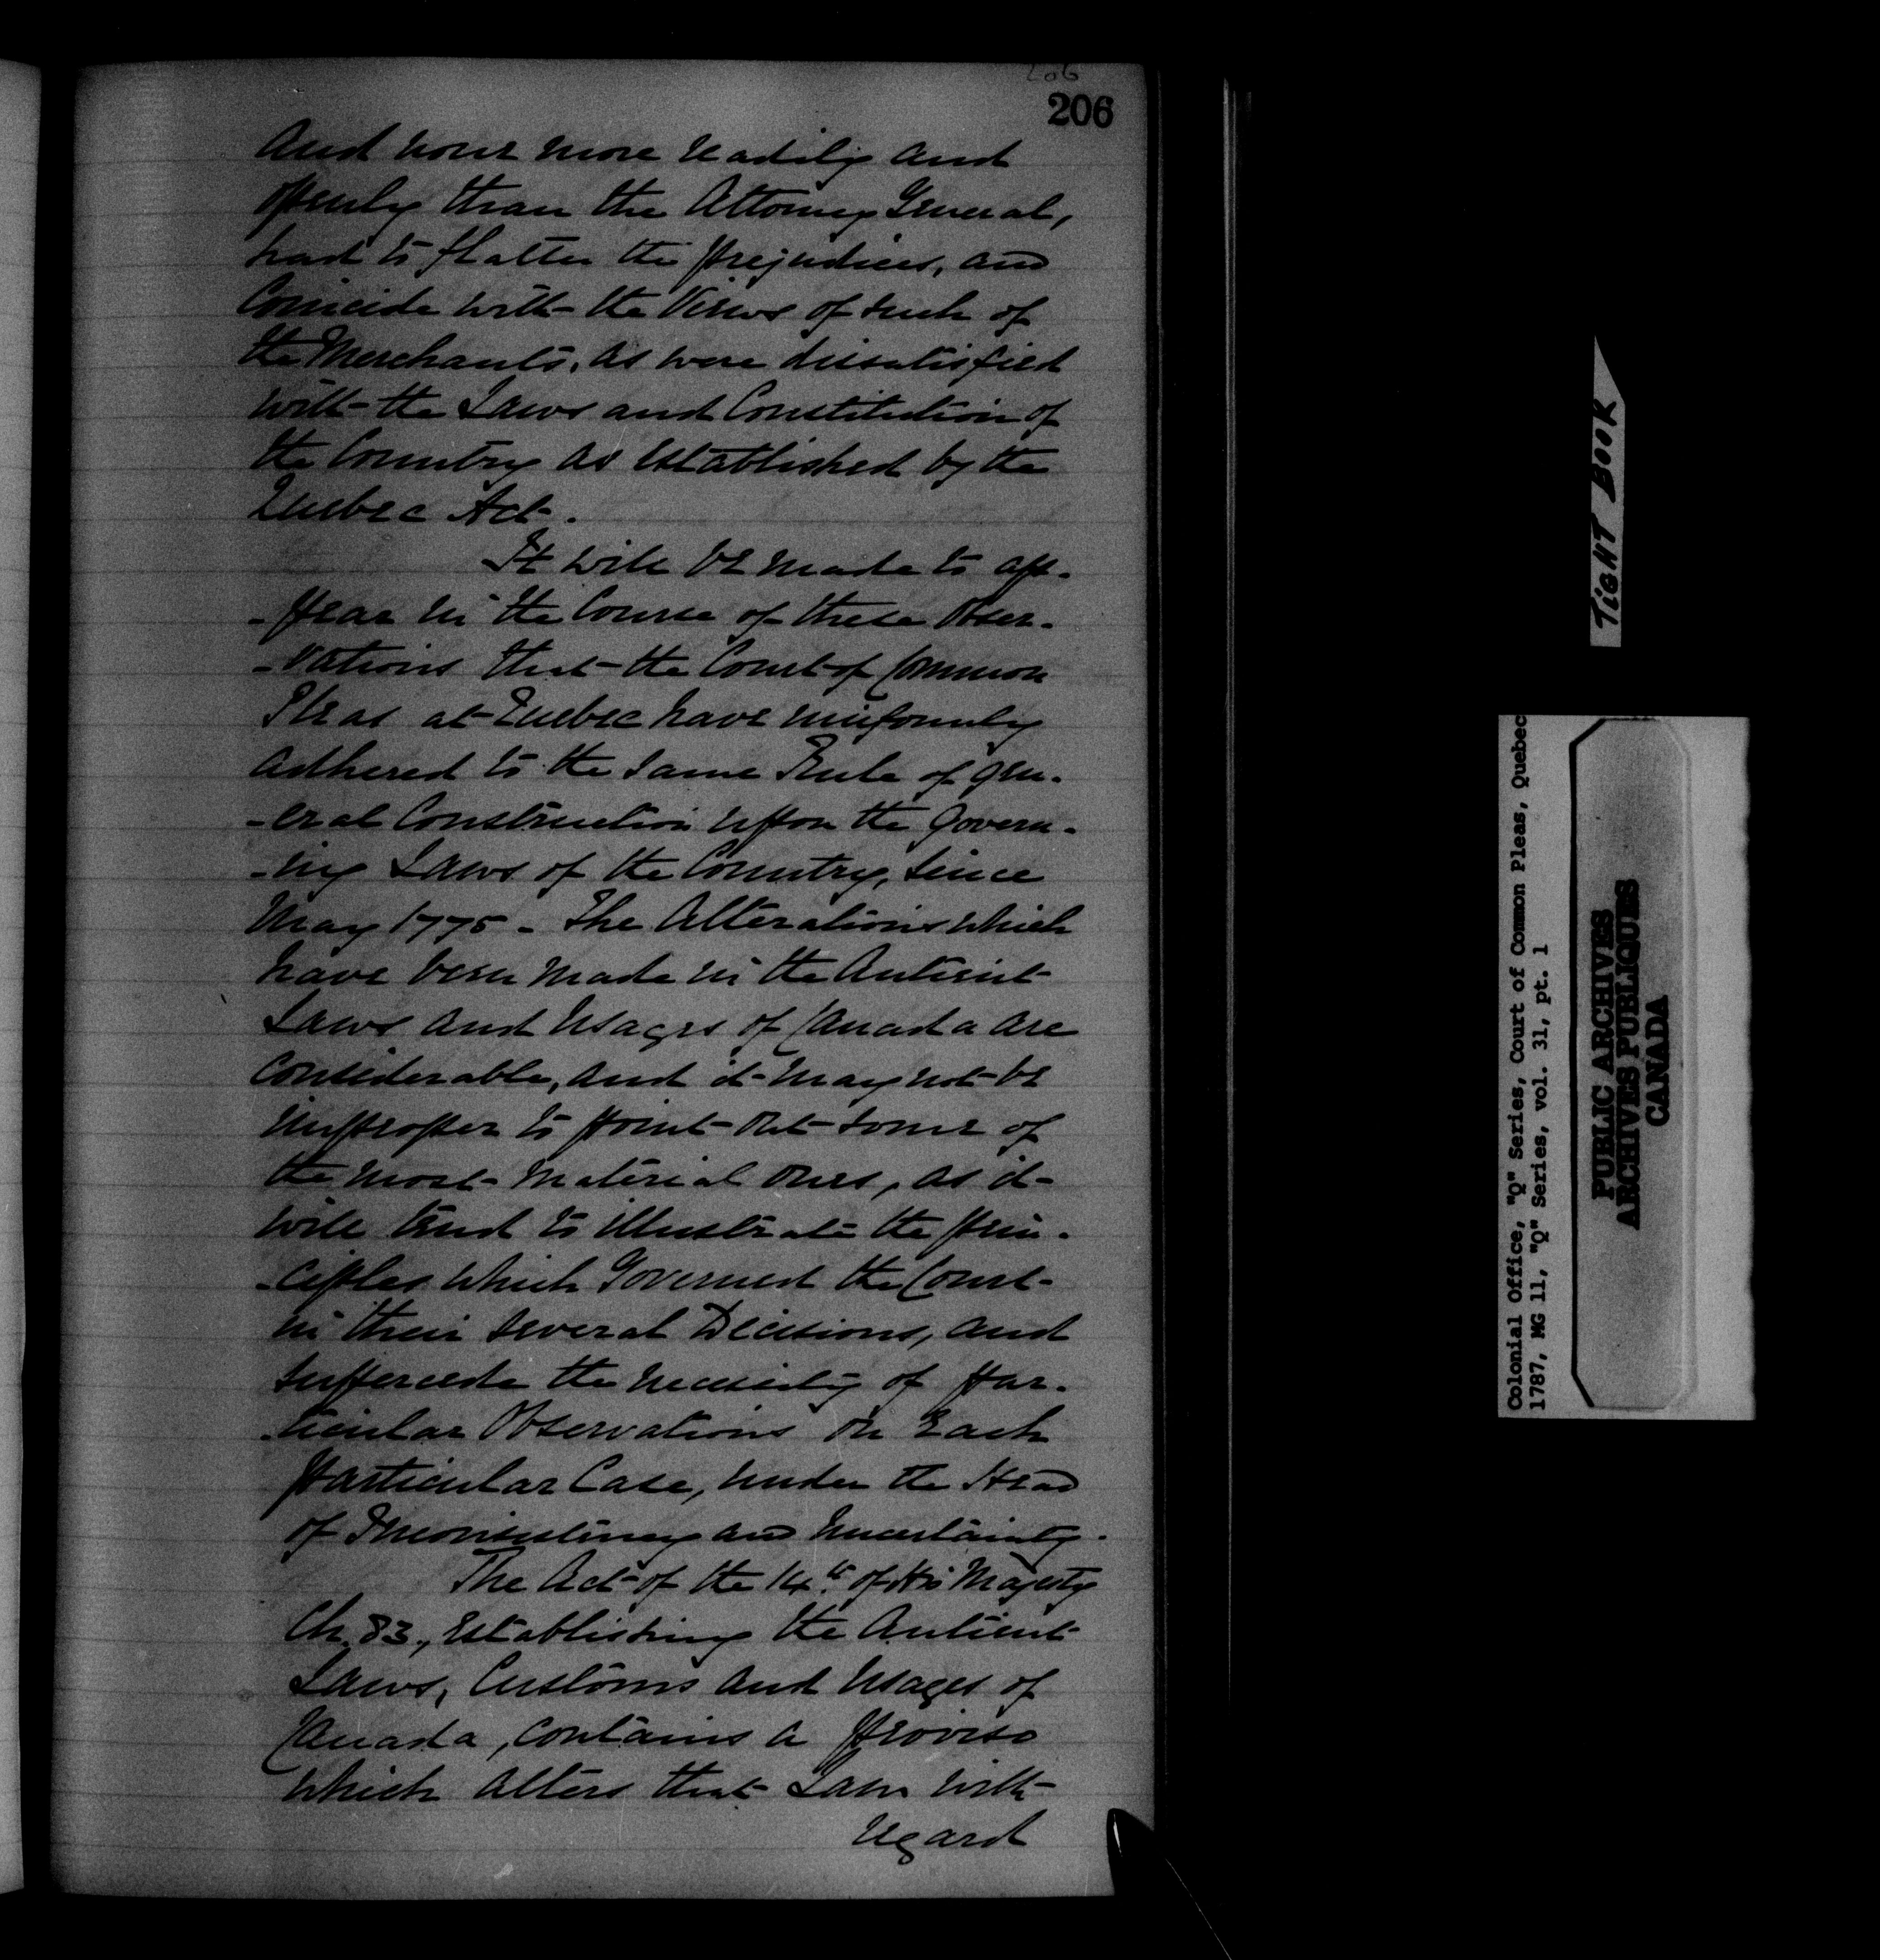 206
206
And none more readily and
openly than the Attorney General,
had to flatter the prejudices, and
Coincide with the Views of such of
the Merchants, as were dissatisfied
with the Laws and Constitution of
the Country as established by the
Quebec Act.
It will be made to ap-
-pear in the Course of these Obser-
-vations that the Court of Common
Pleas at Quebec have uniformly
adhered to the same Rule of gen-
-eral Construction upon the govern-
-ing Laws of the Country, since
May 1775 - The Alterations which
have been made in the Antient
Laws and Usages of Canada are
Considerable, and it may not be
improper to point out some of
the most material ones, as it
will tend to illustrate the prin-
-ciples which Governed the Court
in their several Decisions, and
supercede the necessity of par-
-ticular Observations on Each
particular Case, under the Head
of Inconsistency and Uncertainty.
The Act of the 14th of His Majesty
Ch. 83, Establishing the Antient
Laws, Customs and Usages of
Canada, contains a Proviso
which alters that Law with
regard
TIGHT BOOK
Colonial Office, "Q" Series, Court of Common Pleas, Quebec
1787, MG 11, "Q" Series, vol. 31, pt. 1
PUBLIC ARCHIVES
ARCHIVES PUBLIQUES
CANADA